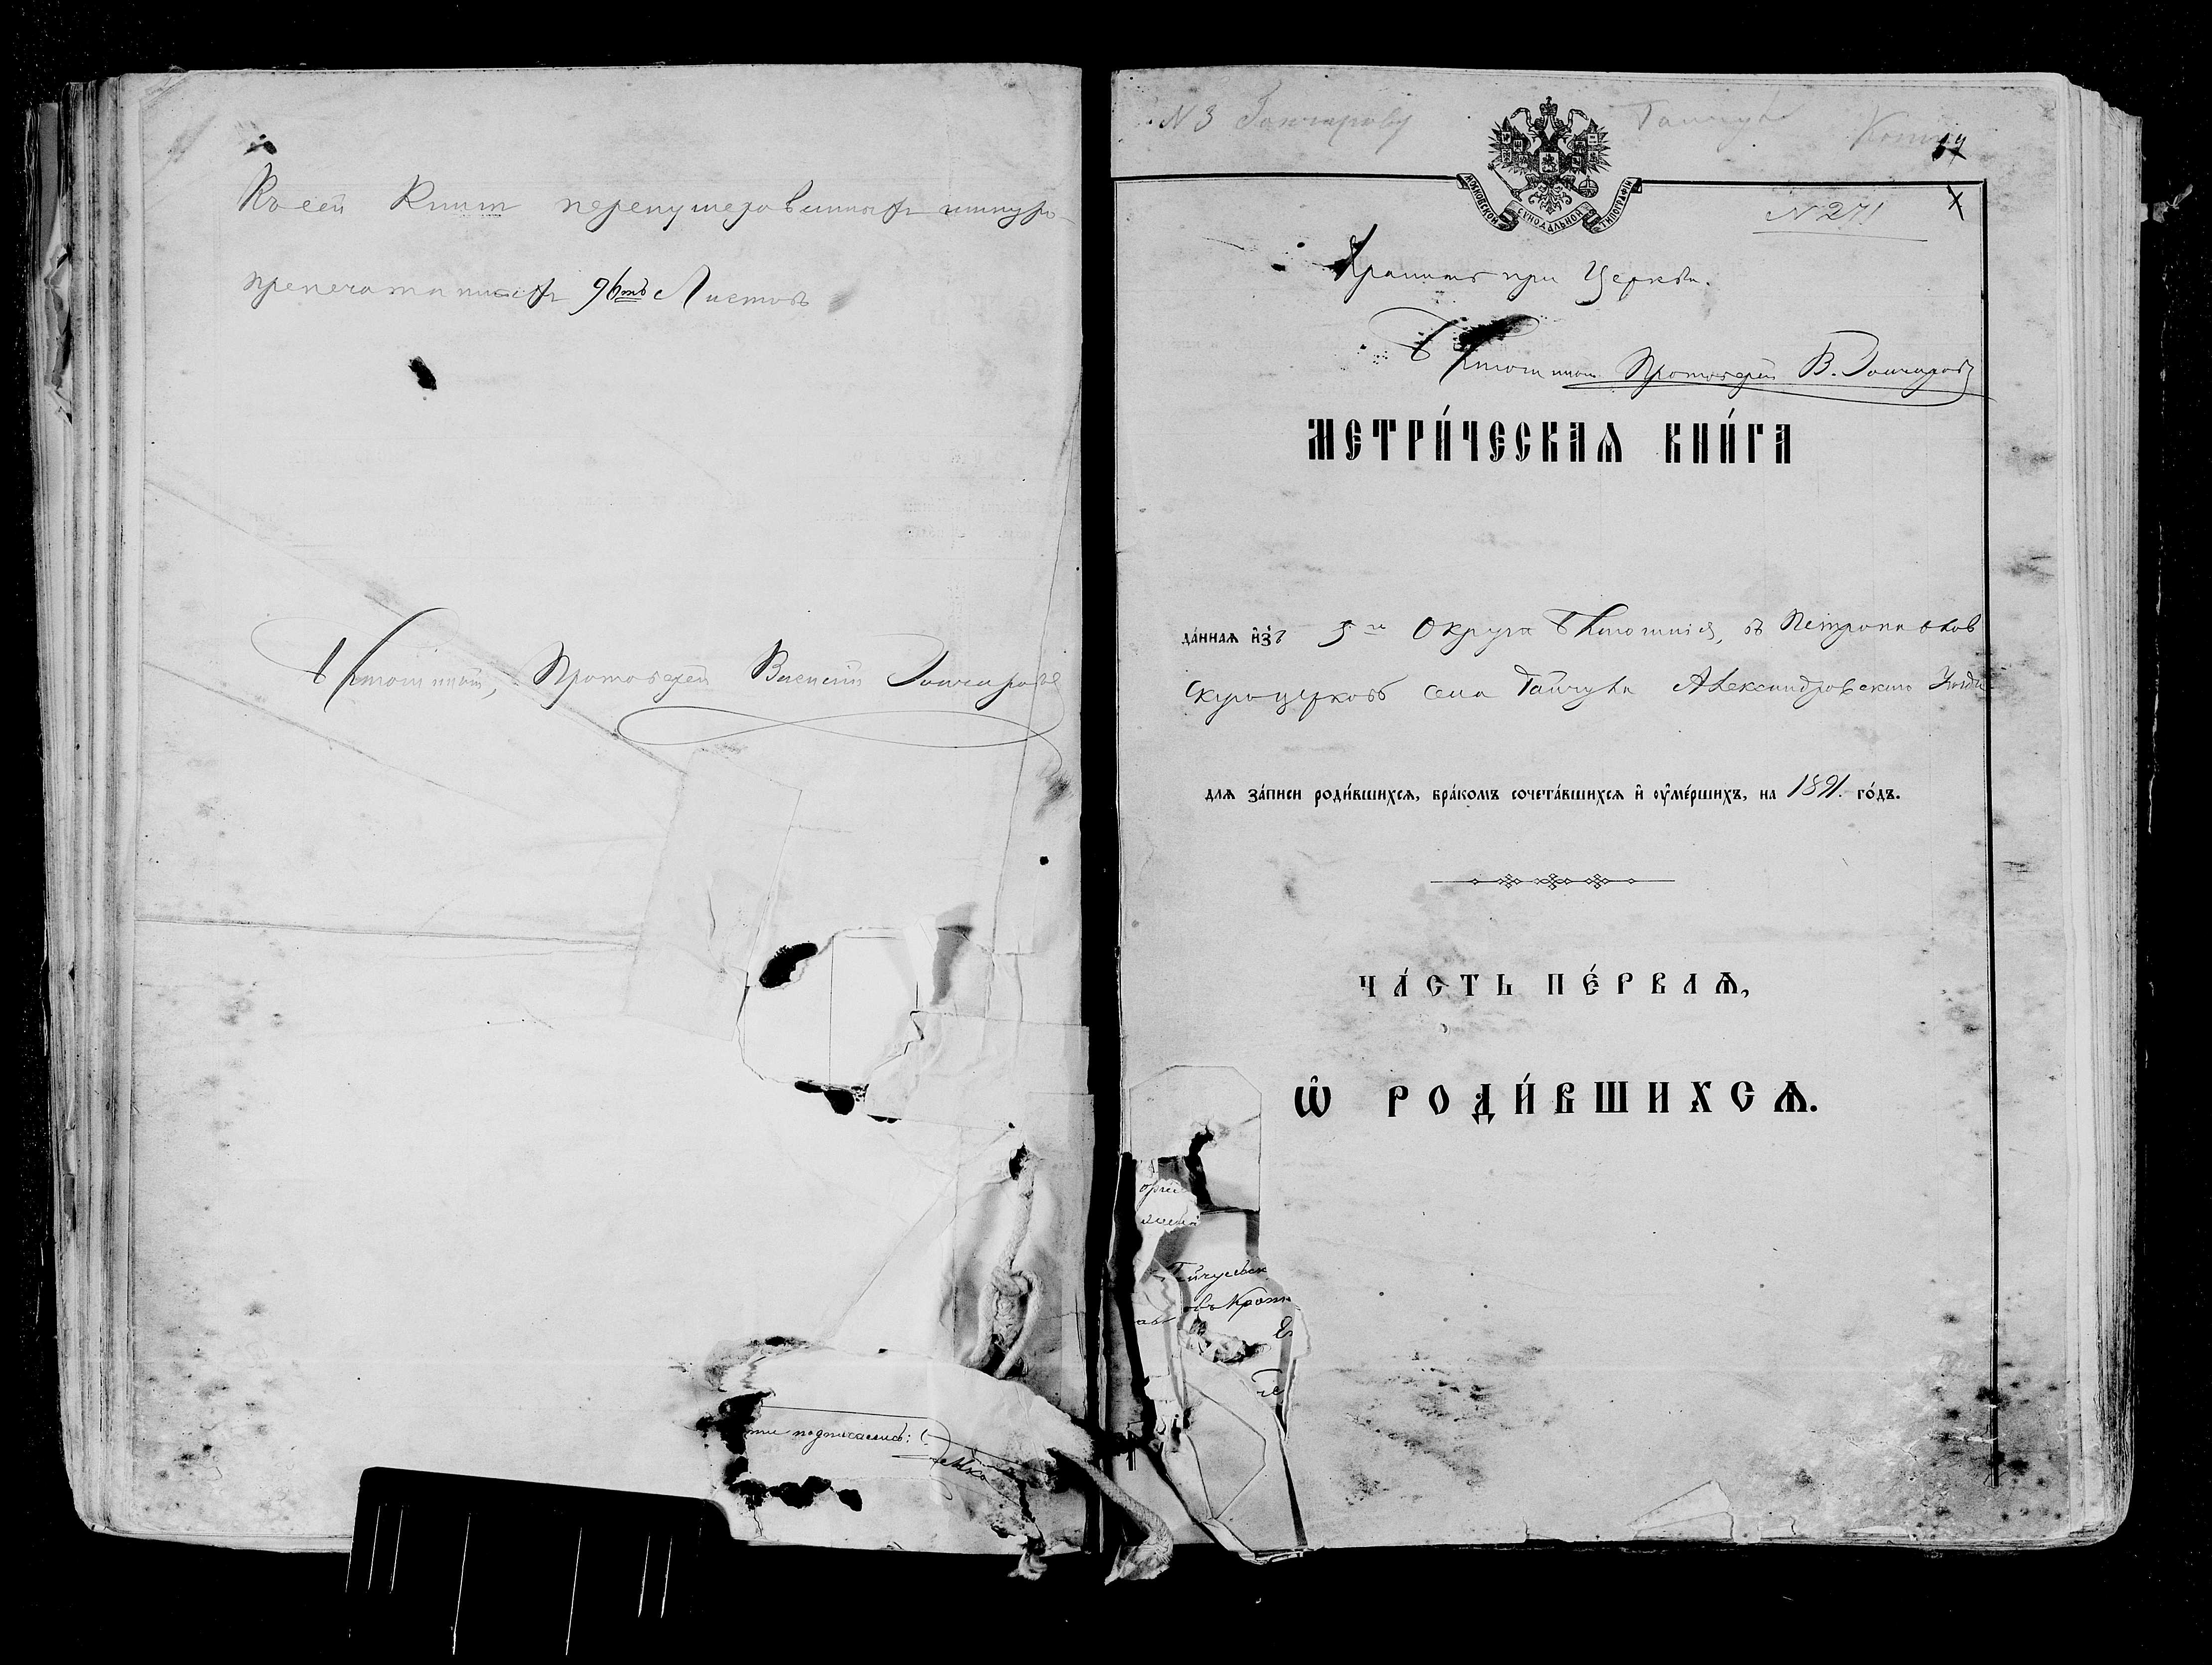 Въ сей Книгѣ перенумерованныхъ шнуро-
препечатанныхъ 96ть Листовъ
Благочинный, Протоіерей Василій Гончаровъ
подписалъ:
№ 3 Гончарову Гайчулъ Копія
МОСКОВСКОЙ СѴНОДАЛЬНОЙ ТИПОГРАФІИ
№ 271
Хранить при Церкви.
Благочинный Протоіерей В. Гончаровъ
МЕТРИ́ЧЕСКАѦ КНИ́ГА
да́ннаѧ и҆зъ 5го Округа Благочинія, въ Петропавлов
скую церковь села Гайчула Александровскаго Уѣзда
длѧ за́писи роди́вшихсѧ, бра́комъ сочета́вшихсѧ и҆ ᲂу҆ме́ршихъ, на 1891. го́дъ.
ЧА́СТЬ ПЕ́РВАѦ,
Ѡ҆ РОДИ́ВШИХСѦ.
Гайчульск